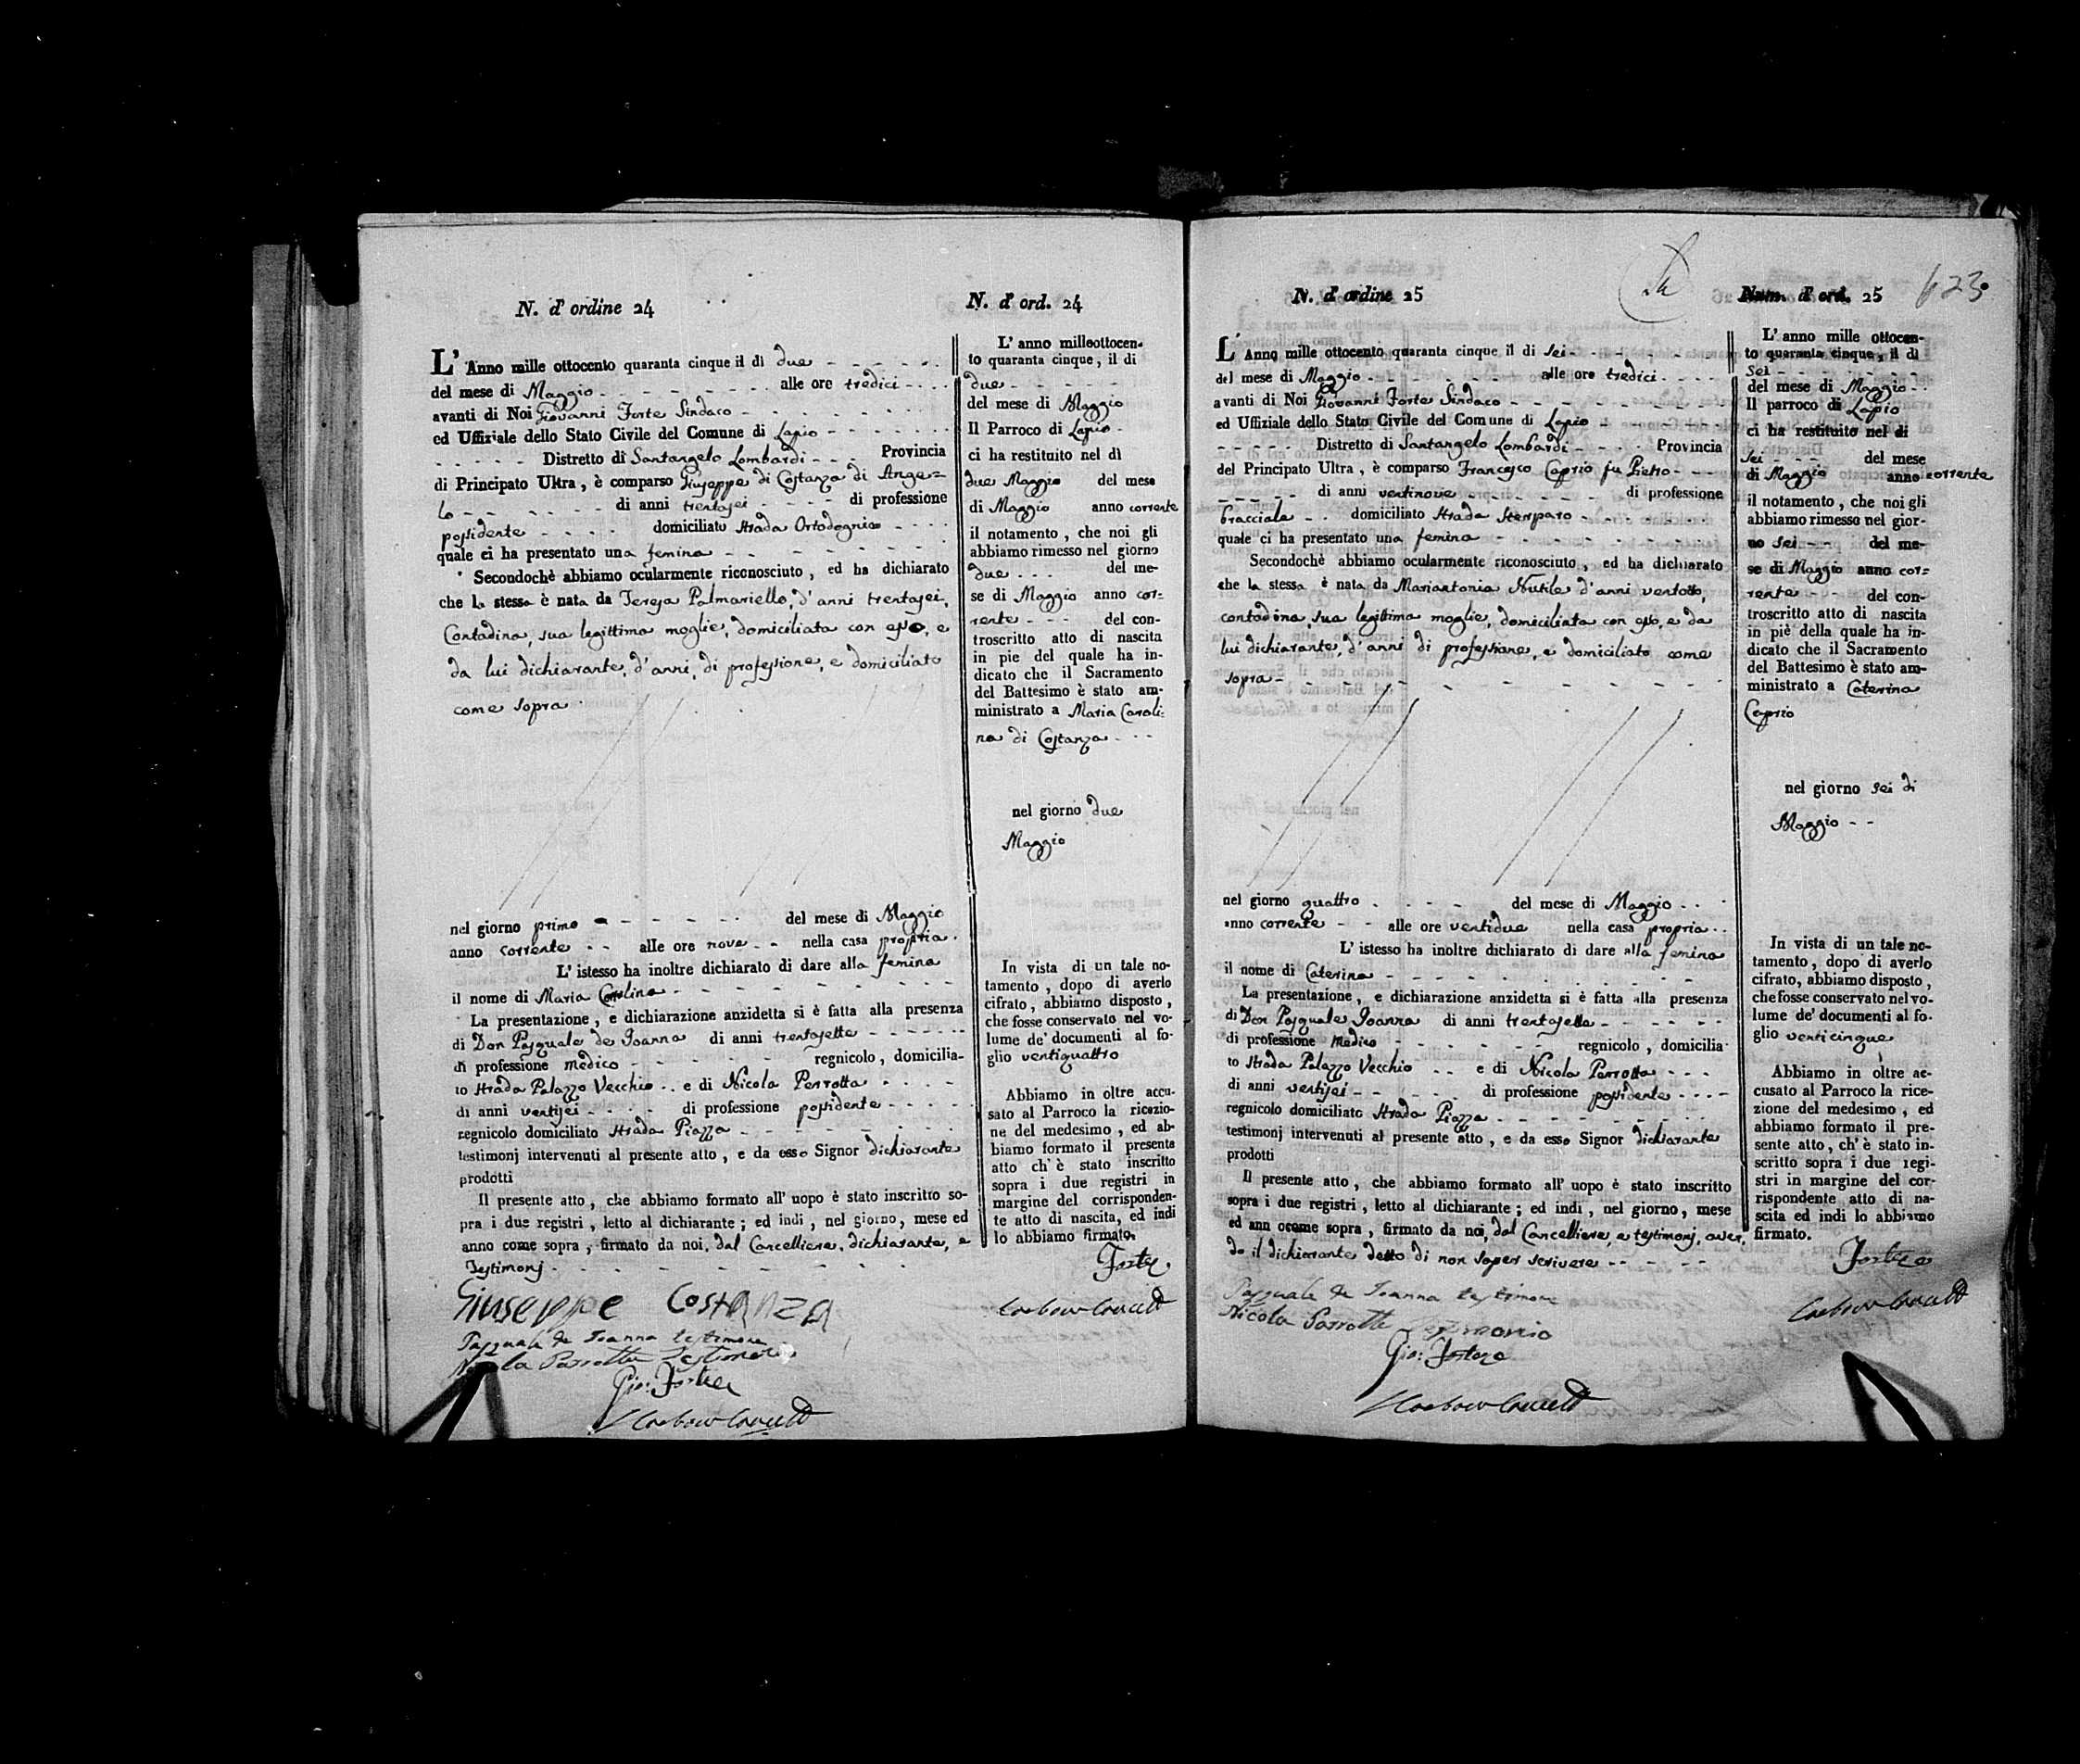 N. d' ordine 24
L' Anno mille ottocento quaranta cinque il di due
del mese di Maggio alle ore tredici
avanti di Noi Giovanni Forte Sindaco
ed Uffiziale dello Stato Civile del Comune di Lapio
Distretto di Santangelo Lombardi Provincia
di Principato Ultra, è comparso Giuseppe di Costanza di Ange=
lo di anni trentasei di professione
possidente domiciliato strada Ortodognico
quale ci ha presentato una femina
Secondochè abbiamo ocularmente riconosciuto, ed ha dichiarato
che la stessa è nata da Teresa Palmariello, d'anni trentasei,
Contadina, sua legittima moglie, domiciliata con esso, e
da lui dichiarante, d'anni, di professione, e domiciliato
come sopra
nel giorno primo del mese di Maggio
anno corrente alle ore nove nella casa propria.
L' istesso ha inoltre dichiarato di dare alla femina
il nome di Maria Carolina
La presentazione, e dichiarazione anzidetta si è fatta alla presenza
di Don Pasquale de Joanna di anni trentasette
di professione medico regnicolo, domicilia-
to strada Palazzo Vecchio e di Nicola Perrotta
di anni ventisei di professione possidente
regnicolo domiciliato strada Piazza
testimonj intervenuti al presente atto, e da esso Signor dichiarante
prodotti
Il presente atto, che abbiamo formato all' uopo è stato inscritto so-
pra i due registri, letto al dichiarante; ed indi, nel giorno, mese ed
anno come sopra, firmato da noi, dal Cancelliere, dichiarante, e
Testimonj
Giuseppe Costanza
Pasquale de Joanna testimone
Nicola Perrotta Testimonio
Gio: Forte
N. d' ord. 24
L' anno milleottocen-
to quaranta cinque, il di
due
del mese di Maggio
Il Parroco di Lapio
ci ha restituito nel dì
due Maggio del mese
di Maggio anno corrente
il notamento, che noi gli
abbiamo rimesso nel giorno
due del me-
se di Maggio anno cor=
rente del con-
troscritto atto di nascita
in pie del quale ha in-
dicato che il Sacramento
del Battesimo è stato am-
ministrato a Maria Caroli=
na di Costanza
nel giorno due
Maggio
In vista di un tale no-
tamento, dopo di averlo
cifrato, abbiamo disposto,
che fosse conservato nel vo-
lume de' documenti al fo-
glio ventiquattro
Abbiamo in oltre accu-
sato al Parroco la ricezio-
ne del medesimo, ed ab-
biamo formato il presente
atto ch' è stato inscritto
sopra i due registri in
margine del corrisponden-
te atto di nascita, ed indi
lo abbiamo firmato.
Forte
N. d' ordine 25
L' Anno mille ottocento quaranta cinque il di sei
del mese di Maggio alle ore tredici
avanti di Noi Giovanni Forte Sindaco
ed Uffiziale dello Stato Civile del Comune di Lapio
Distretto di Santangelo Lombardi Provincia
del Principato Ultra, è comparso Francesco Caprio fu Pietro
di anni ventinove di professione
bracciale domiciliato strada Sterparo
quale ci ha presentato una femina
Secondochè abbiamo ocularmente riconosciuto, ed ha dichiarato
che la stessa è nata da Mariantonia Nutile d'anni ventotto,
contadina, sua legittima moglie, domiciliata con esso, e da
lui dichiarante, d'anni di professione, e domiciliato come
sopra
nel giorno quattro del mese di Maggio
anno corrente alle ore ventidue nella casa propria
L' istesso ha inoltre dichiarato di dare alla femina
il nome di Caterina
La presentazione, e dichiarazione anzidetta si è fatta alla presenza
di Don Pasquale Joanna di anni trentasette
di professione medico regnicolo, domicilia-
to strada Palazzo Vecchio e di Nicola Perrotta
di anni ventisei di professione possidente
regnicolo domiciliato strada Piazza
testimonj intervenuti al presente atto, e da esso Signor dichiarante
prodotti
Il presente atto, che abbiamo formato all' uopo è stato inscritto
sopra i due registri, letto al dichiarante; ed indi, nel giorno, mese
ed ann ocome sopra, firmato da noi, dal Cancelliere, e testimonj, aven.
do il dichiarante detto di non saper scrivere
Pasquale de Joanna testimone
Nicola Perrotta Testimonio
Gio: Forte
Num. d' ord. 25
623
L' anno mille ottocen-
to quaranta cinque, il di
Sei
del mese di Maggio
Il parroco di Lapio
ci ha restituito nel di
sei del mese
di Maggio anno corrente
il notamento, che noi gli
abbiamo rimesso nel gior-
no sei del me-
se di Maggio anno cor=
rente del con-
troscritto atto di nascita
in piè della quale ha in-
dicato che il Sacramento
del Battesimo è stato am-
ministrato a Caterina
Caprio
nel giorno sei di
Maggio
In vista di un tale no-
tamento, dopo di averlo
cifrato, abbiamo disposto,
che fosse conservato nel vo-
lume de' documenti al fo-
glio venticinque
Abbiamo in oltre ac-
cusato al Parroco la rice-
zione del medesimo, ed
abbiamo formato il pre-
sente atto, ch' è stato in-
scritto sopra i due regi-
stri in margine del cor-
rispondente atto di na-
scita ed indi lo abbiamo
firmato.
Forte